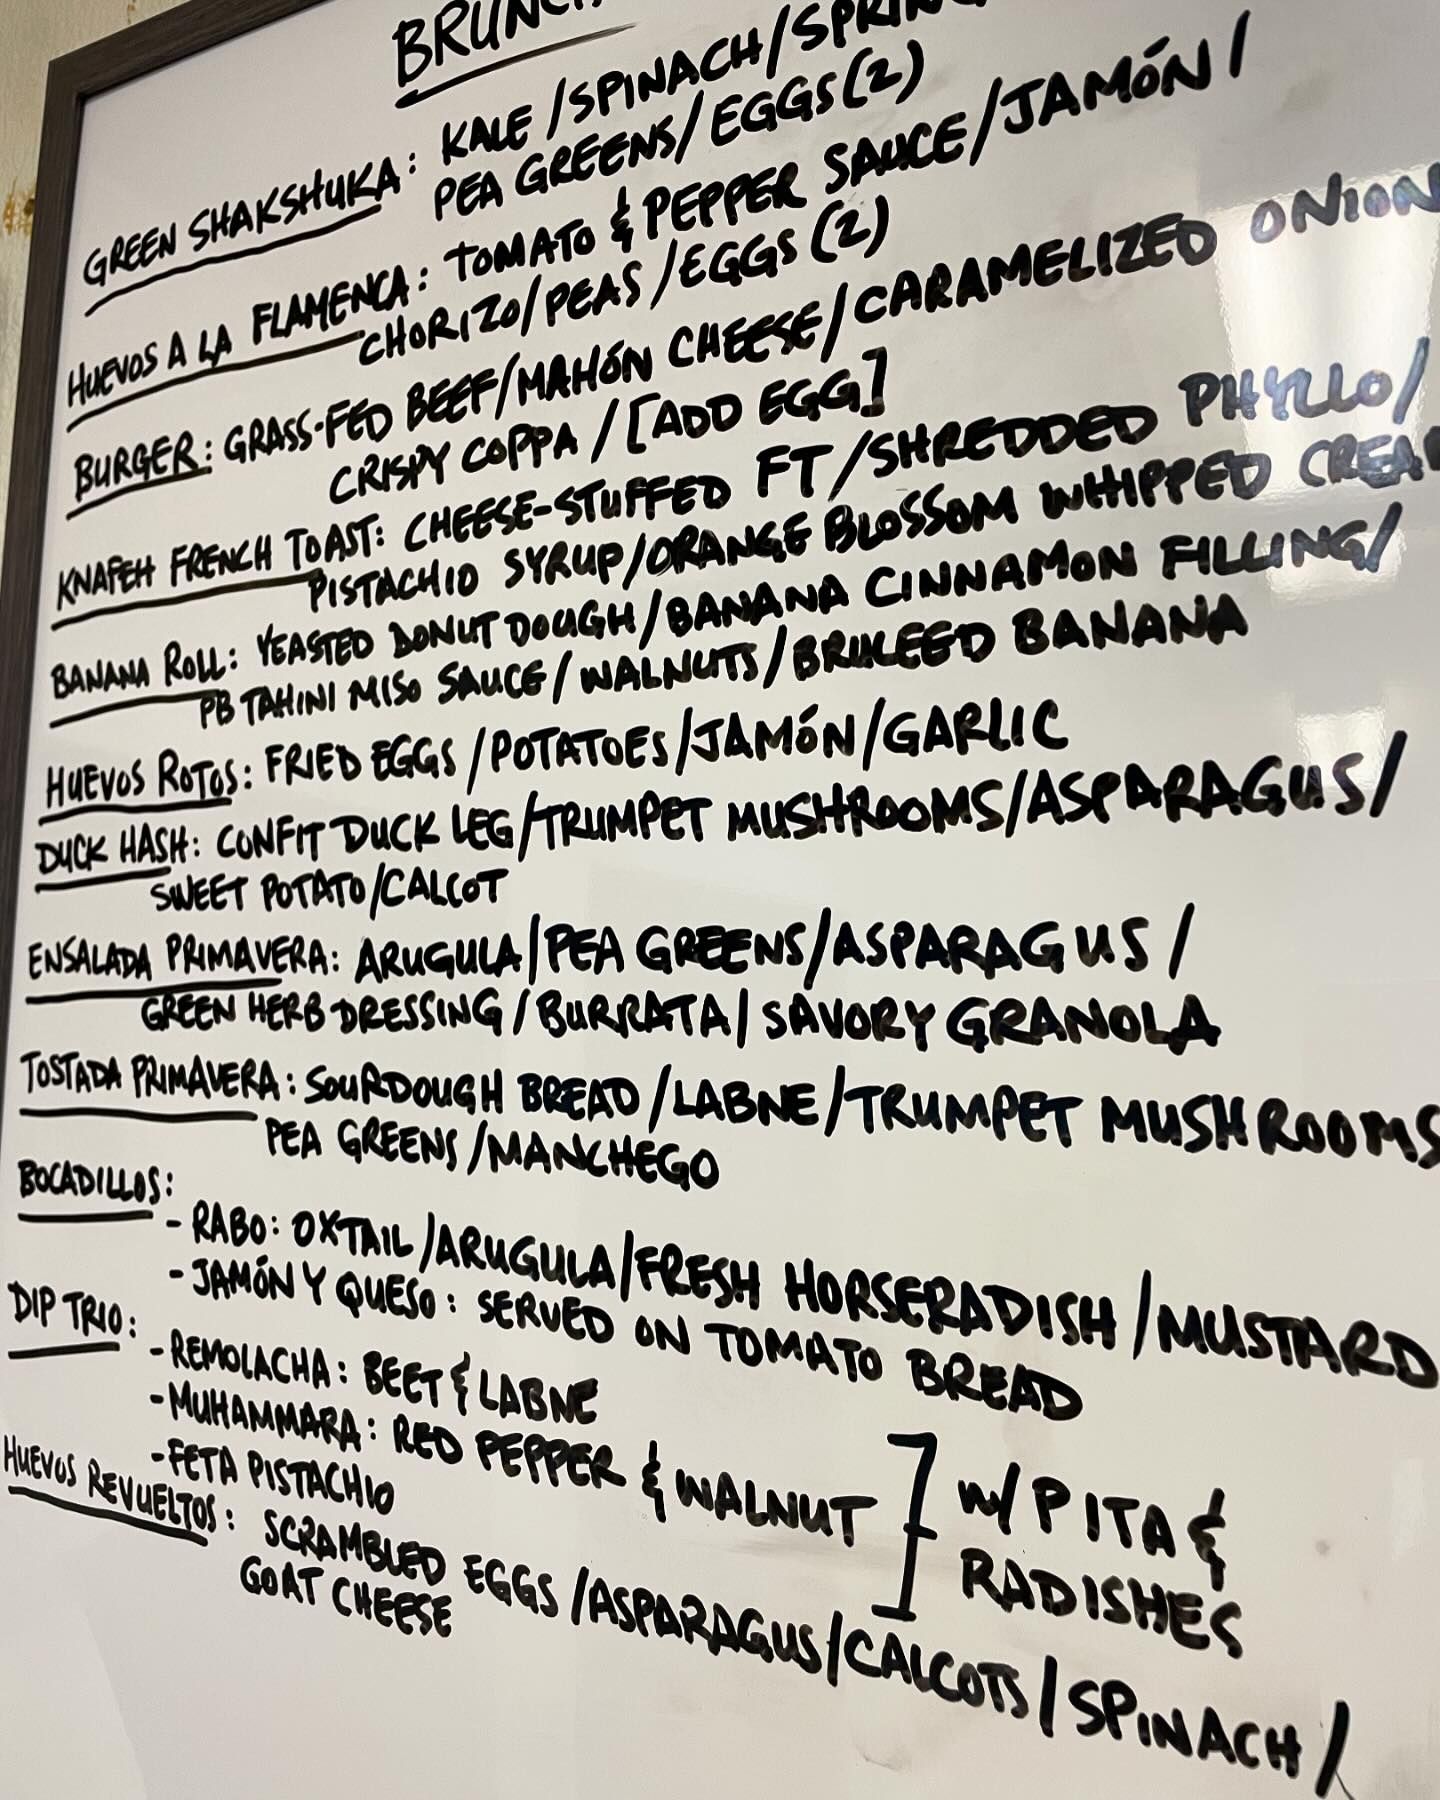 BRUNCH
GREEN SHAKSHUKA: KALE/SPINACH/SPRING
PEA GREENS/EGGS(2)
HUEVOS A LA FLAMENCA: TOMATO & PEPPER SAUCE/JAMÓN/
CHORIZO/PEAS/EGGS(2)
BURGER: GRASS-FED BEEF/MAHÓN CHEESE/CARAMELIZED ONION
CRISPY COPPA/[ADD EGG]
KNAFEH FRENCH TOAST: CHEESE-STUFFED FT/SHREDDED PHYLLO/
PISTACHIO SYRUP/ORANGE BLOSSOM WHIPPED CREAM
BANANA ROLL: YEASTED DONUT DOUGH/BANANA CINNAMON FILLING/
PB TAHINI MISO SAUCE/WALNUTS/BRULEED BANANA
HUEVOS ROTOS: FRIED EGGS/POTATOES/JAMÓN/GARLIC
DUCK HASH: CONFIT DUCK LEG/TRUMPET MUSHROOMS/ASPARAGUS/
SWEET POTATO/CALCOT
ENSALADA PRIMAVERA: ARUGULA/PEA GREENS/ASPARAGUS/
GREEN HERB DRESSING/BURRATA/SAVORY GRANOLA
TOSTADA PRIMAVERA: SOURDOUGH BREAD/LABNE/TRUMPET MUSHROOMS
PEA GREENS/MANCHEGO
BOCADILLOS:
- RABO: OXTAIL/ARUGULA/FRESH HORSERADISH/MUSTARD
- JAMÓN Y QUESO: SERVED ON TOMATO BREAD
DIP TRIO:
- REMOLACHA: BEET & LABNE
- MUHAMMARA: RED PEPPER & WALNUT
- FETA PISTACHIO
] W/ PITA &
RADISHES
HUEVOS REVUELTOS: SCRAMBLED EGGS/ASPARAGUS/CALCOTS/SPINACH/
GOAT CHEESE